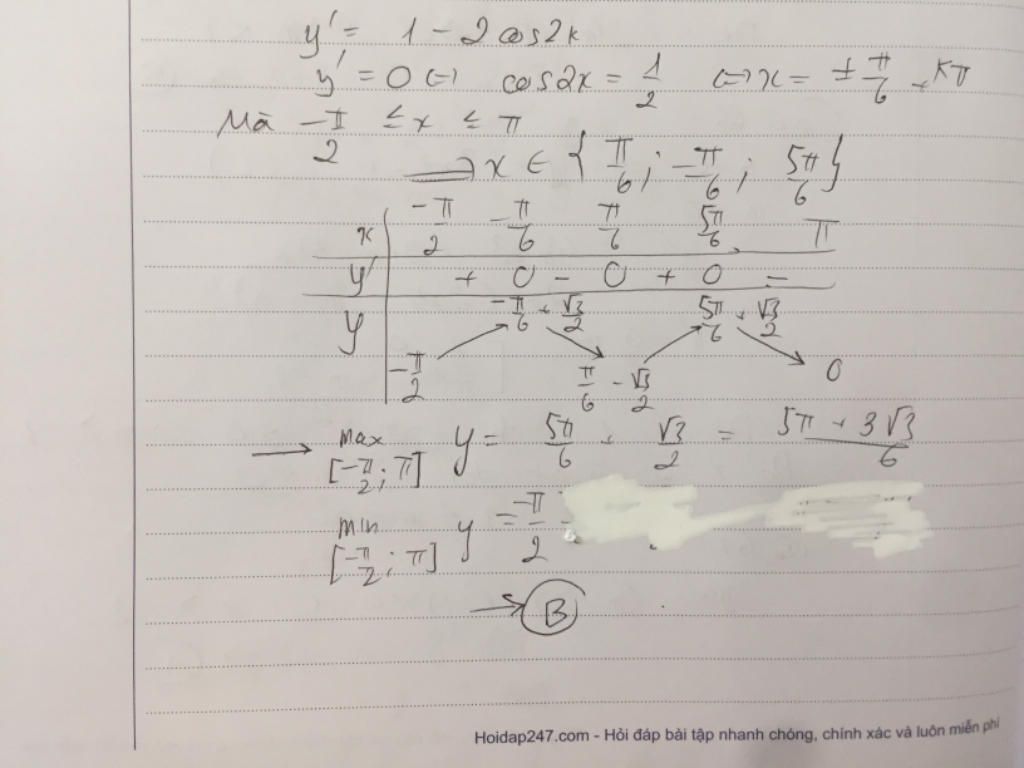 y' = 1 - 2 cos2x
y' = 0 ⇔ cos2x = 1/2 ⇔ x = ± π/6 + kπ
Mà -π/2 ≤ x ≤ π
⟹ x ∈ { π/6 ; -π/6 ; 5π/6 }
x | -π/2 -π/6 π/6 5π/6 π
y' | + 0 - 0 + 0 -
y | -π/2 ↗ -π/6 + √3/2 ↘ π/6 - √3/2 ↗ 5π/6 + √3/2 ↘ 0
→ max [-π/2 ; π] y = 5π/6 + √3/2 = (5π + 3√3)/6
min [-π/2 ; π] y = -π/2
→ B
Hoidap247.com - Hỏi đáp bài tập nhanh chóng, chính xác và luôn miễn phí